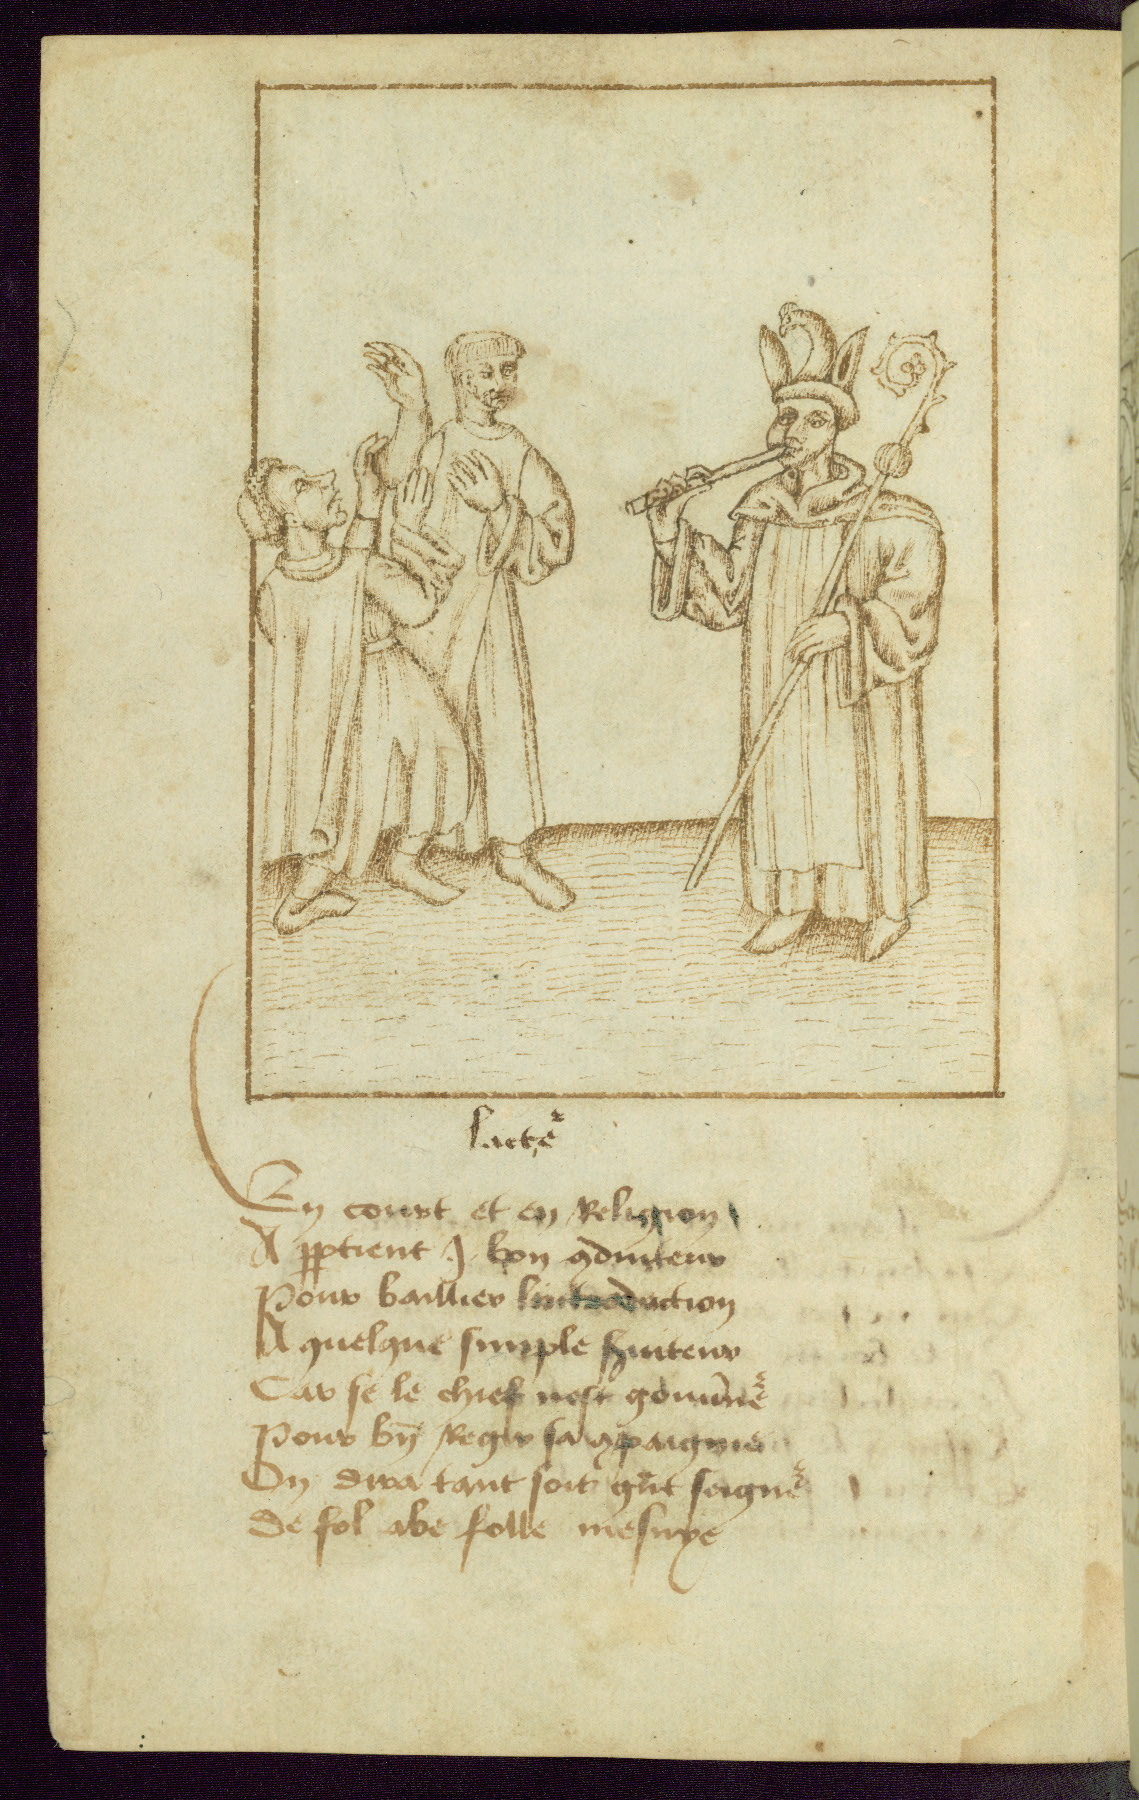 lacte
En court et en Religion
A pptient .I. bon 9duiteur
Pour baillier lintroduction
A quelque simple suiteur
Car se le chief nest gouune
Pour by Regir sa 9paignie
On dira tant soit gnt
De fol abe folle mesnye